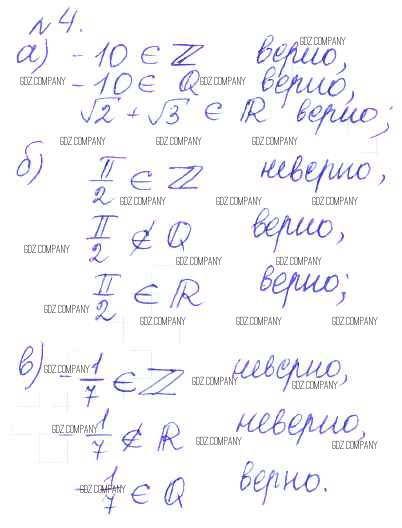 №4.
а) -10 ∈ ℤ верно,
-10 ∈ ℚ верно,
√2 + √3 ∈ ℝ верно;
б) π/2 ∈ ℤ неверно,
π/2 ∉ ℚ верно,
π/2 ∈ ℝ верно;
в) -1/7 ∈ ℤ неверно,
-1/7 ∉ ℝ неверно,
-1/7 ∈ ℚ верно.
GDZ.COMPANY
GDZ.COMPANY GDZ.COMPANY GDZ.COMPANY
GDZ.COMPANY GDZ.COMPANY GDZ.COMPANY
GDZ.COMPANY GDZ.COMPANY GDZ.COMPANY
GDZ.COMPANY
GDZ.COMPANY GDZ.COMPANY
GDZ.COMPANY
GDZ.COMPANY GDZ.COMPANY GDZ.COMPANY
GDZ.COMPANY
GDZ.COMPANY GDZ.COMPANY
GDZ.COMPANY
GDZ.COMPANY GDZ.COMPANY
GDZ.COMPANY